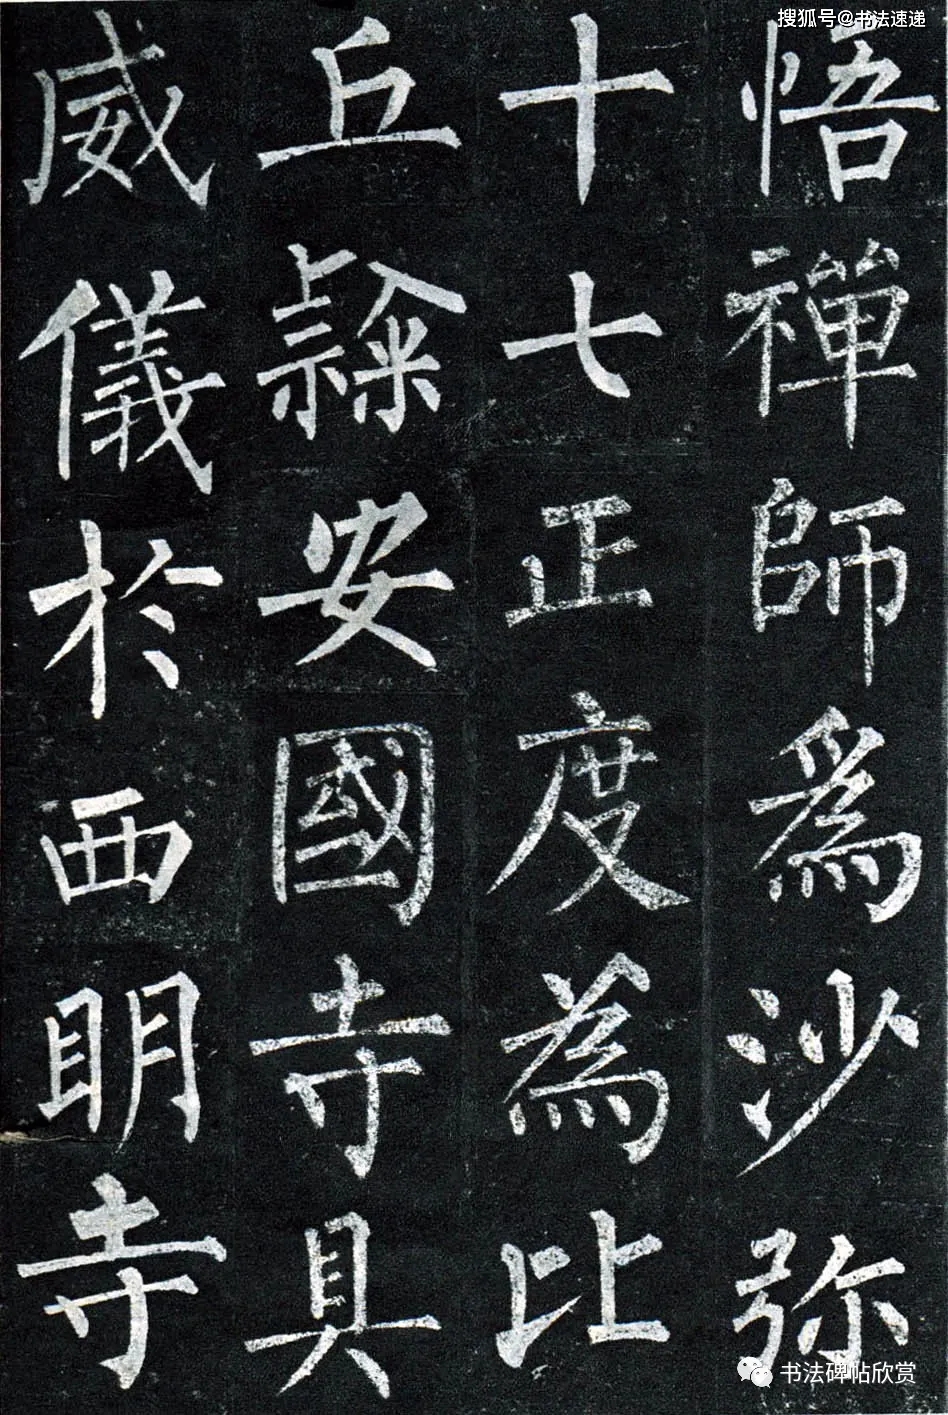 搜狐号@书法速递
悟禪師爲沙弥
十七正度為比
丘隸安國寺具
威儀於西明寺
书法碑帖欣赏